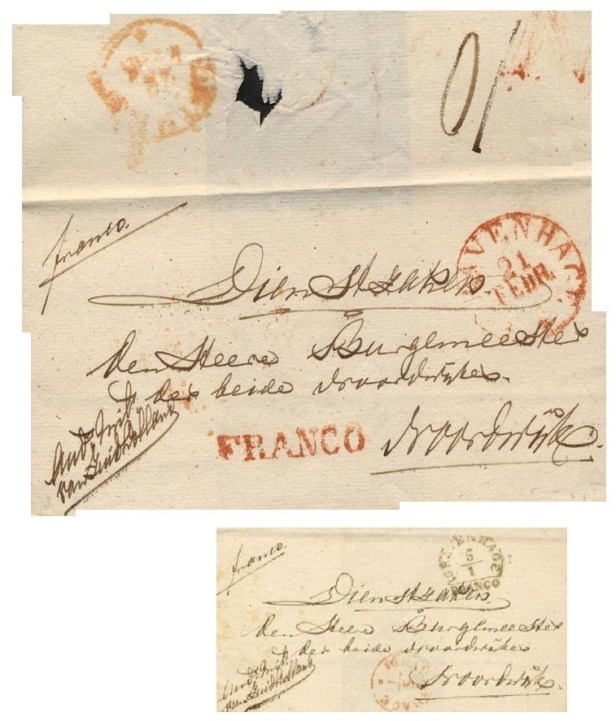 franco.
Dienstzaken
AVENHAG
21
FEBR.
den Heere Burgemeester
der beide Noordwijken.
van Zuid Holland
FRANCO
Noordwijk
franco.
'SGRAVENHAGE
5
1
FRANCO
Dienstzaken
den Heere Burgemeester
der beide Noordwijken
van Zuid Holland
Noordwijk